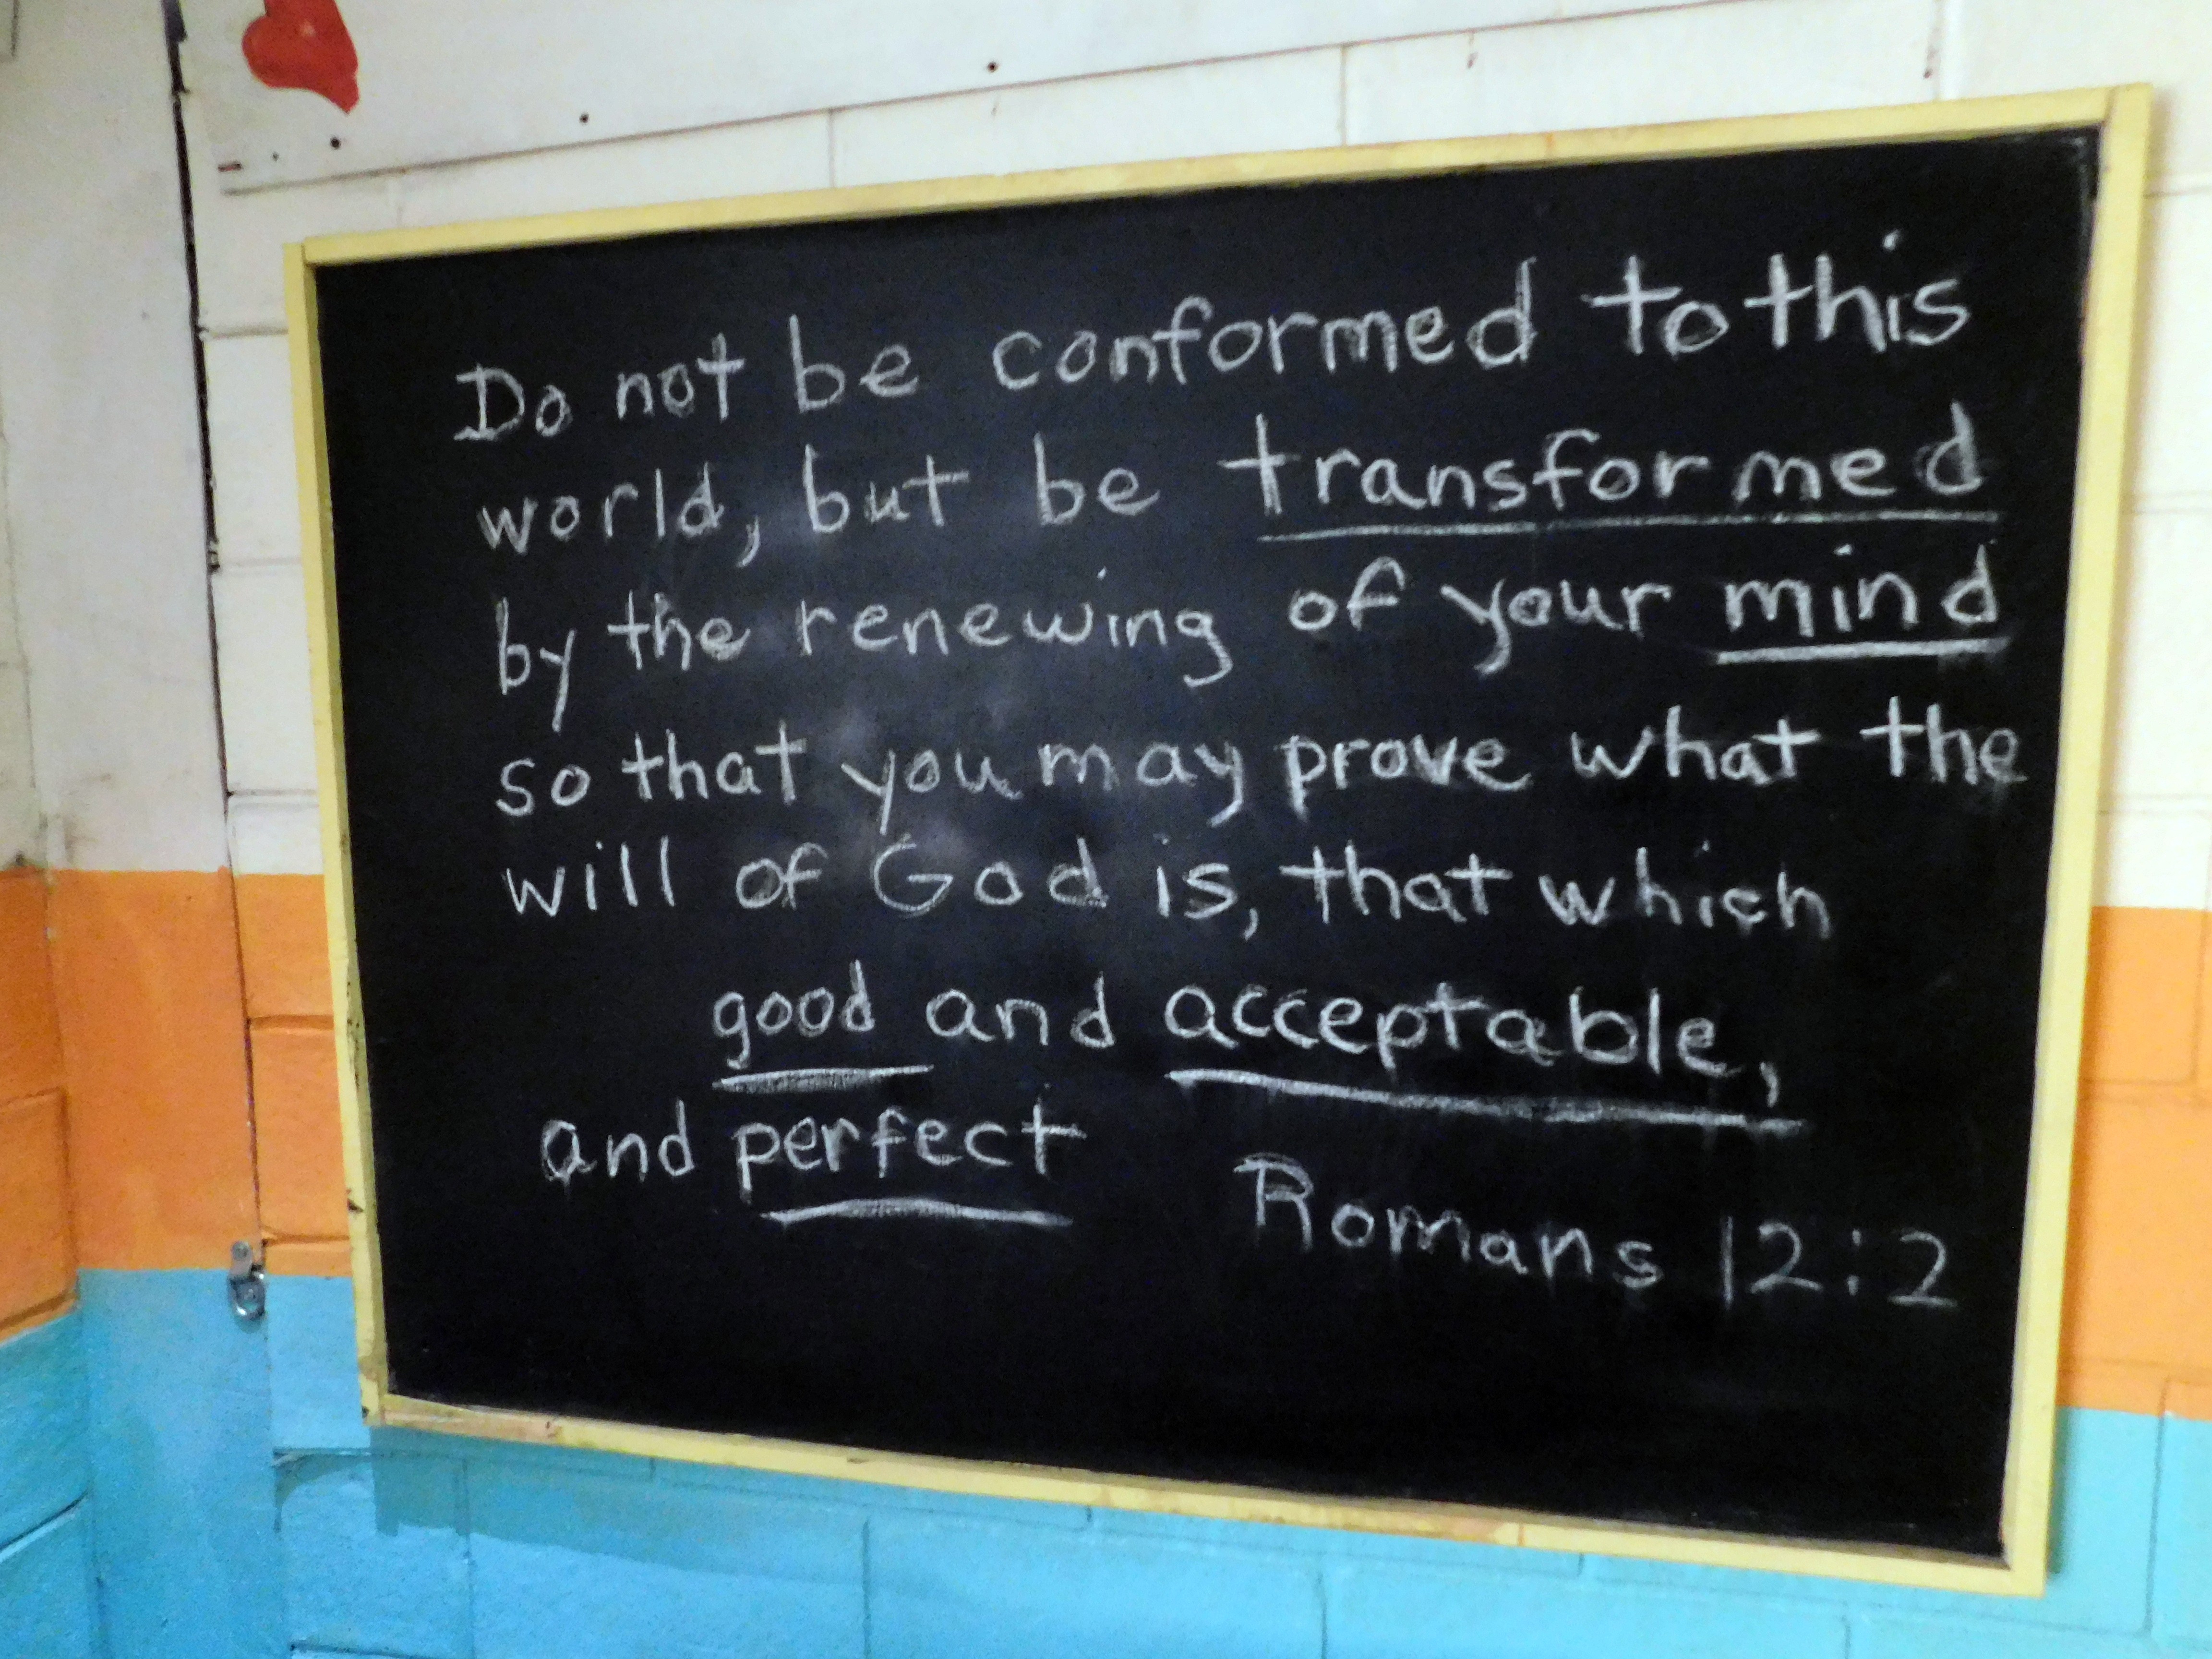 Do not be conformed to this
world, but be transformed
by the renewing of your mind
so that you may prove what the
will of God is, that which
good and acceptable,
and perfect
Romans 12:2